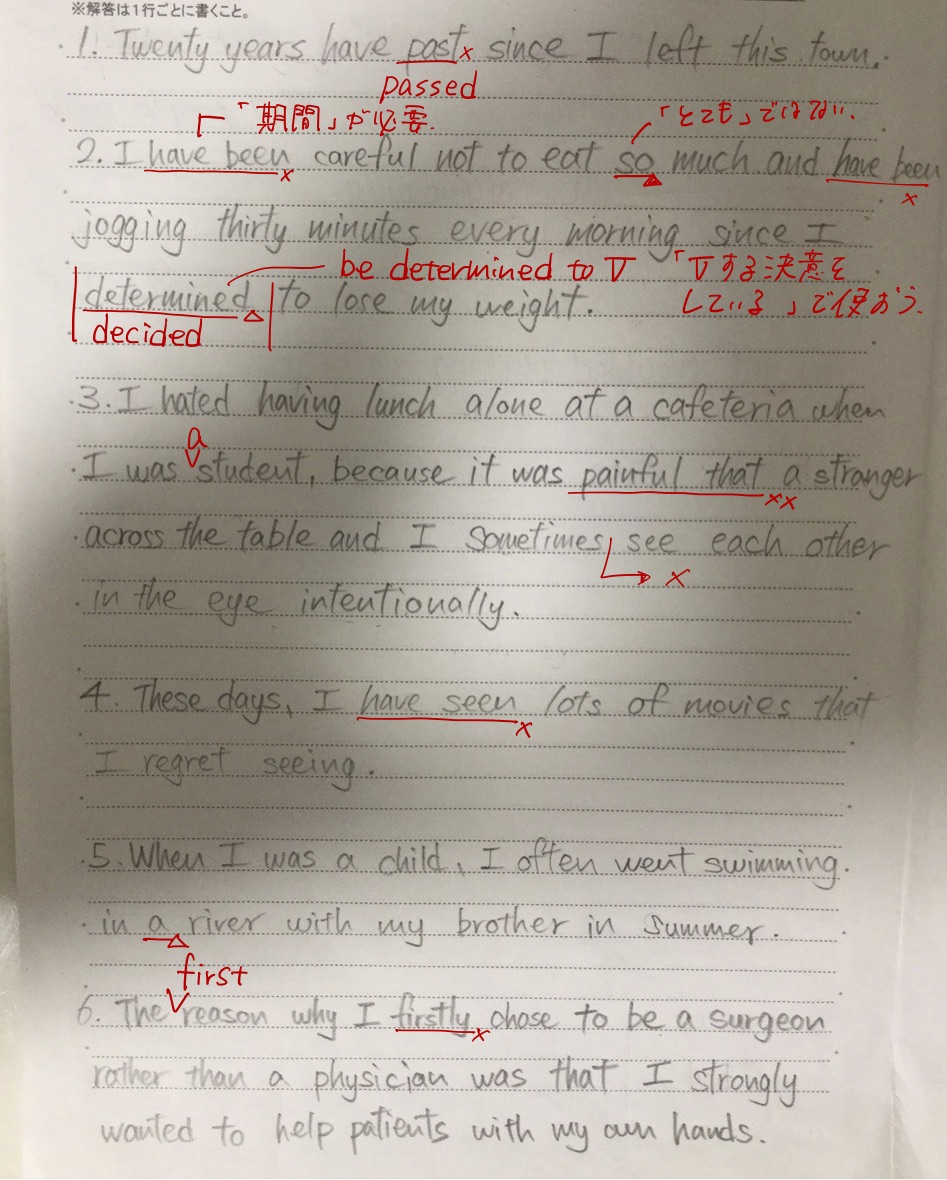 ※解答は1行ごとに書くこと。
1. Twenty years have past since I left this town.
×
passed
「期間」が必要.
「とても」ではない.
2. I have been careful not to eat so much and have been
×
×
jogging thirty minutes every morning since I
be determined to V 「Vする決意を
している」で使おう.
determined to lose my weight.
decided
3. I hated having lunch alone at a cafeteria when
a
I was student, because it was painful that a stranger
××
across the table and I sometimes see each other
×
in the eye intentionally.
4. These days, I have seen lots of movies that
×
I regret seeing.
5. When I was a child, I often went swimming
in a river with my brother in summer.
first
6. The reason why I firstly chose to be a surgeon
×
rather than a physician was that I strongly
wanted to help patients with my own hands.